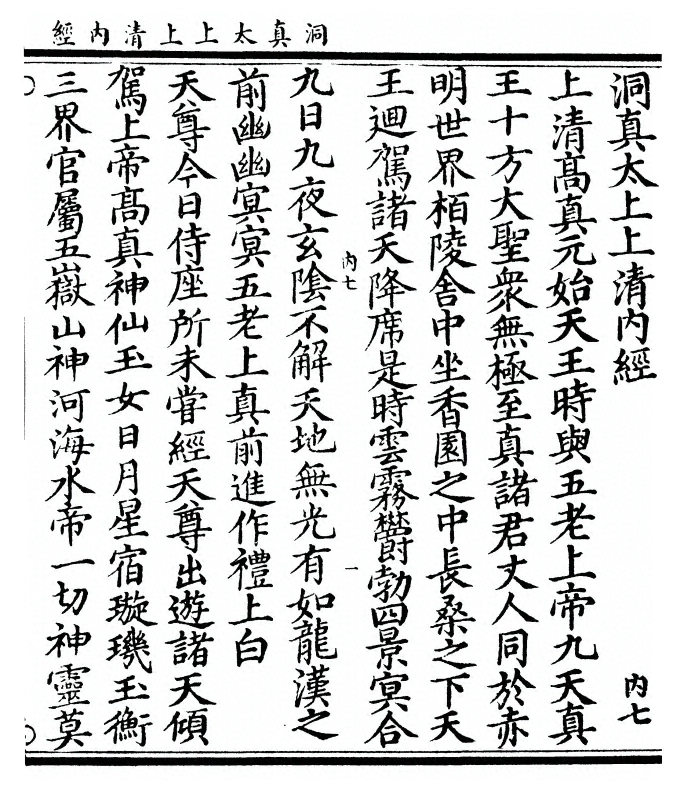 洞真太上上清內經
洞真太上上清內經
內七
上清高真元始天王時與五老上帝九天真
王十方大聖衆無極至真諸君丈人同於赤
明世界栢陵舍中坐香園之中長桑之下天
王迴駕諸天降席是時雲霧欝勃四景冥合
內七
一
九日九夜玄陰不解天地無光有如龍漢之
前幽幽冥冥五老上真前進作禮上白
天尊今日侍座所未嘗經天尊出遊諸天傾
駕上帝高真神仙玉女日月星宿璇璣玉衡
三界官屬五嶽山神河海水帝一切神靈莫